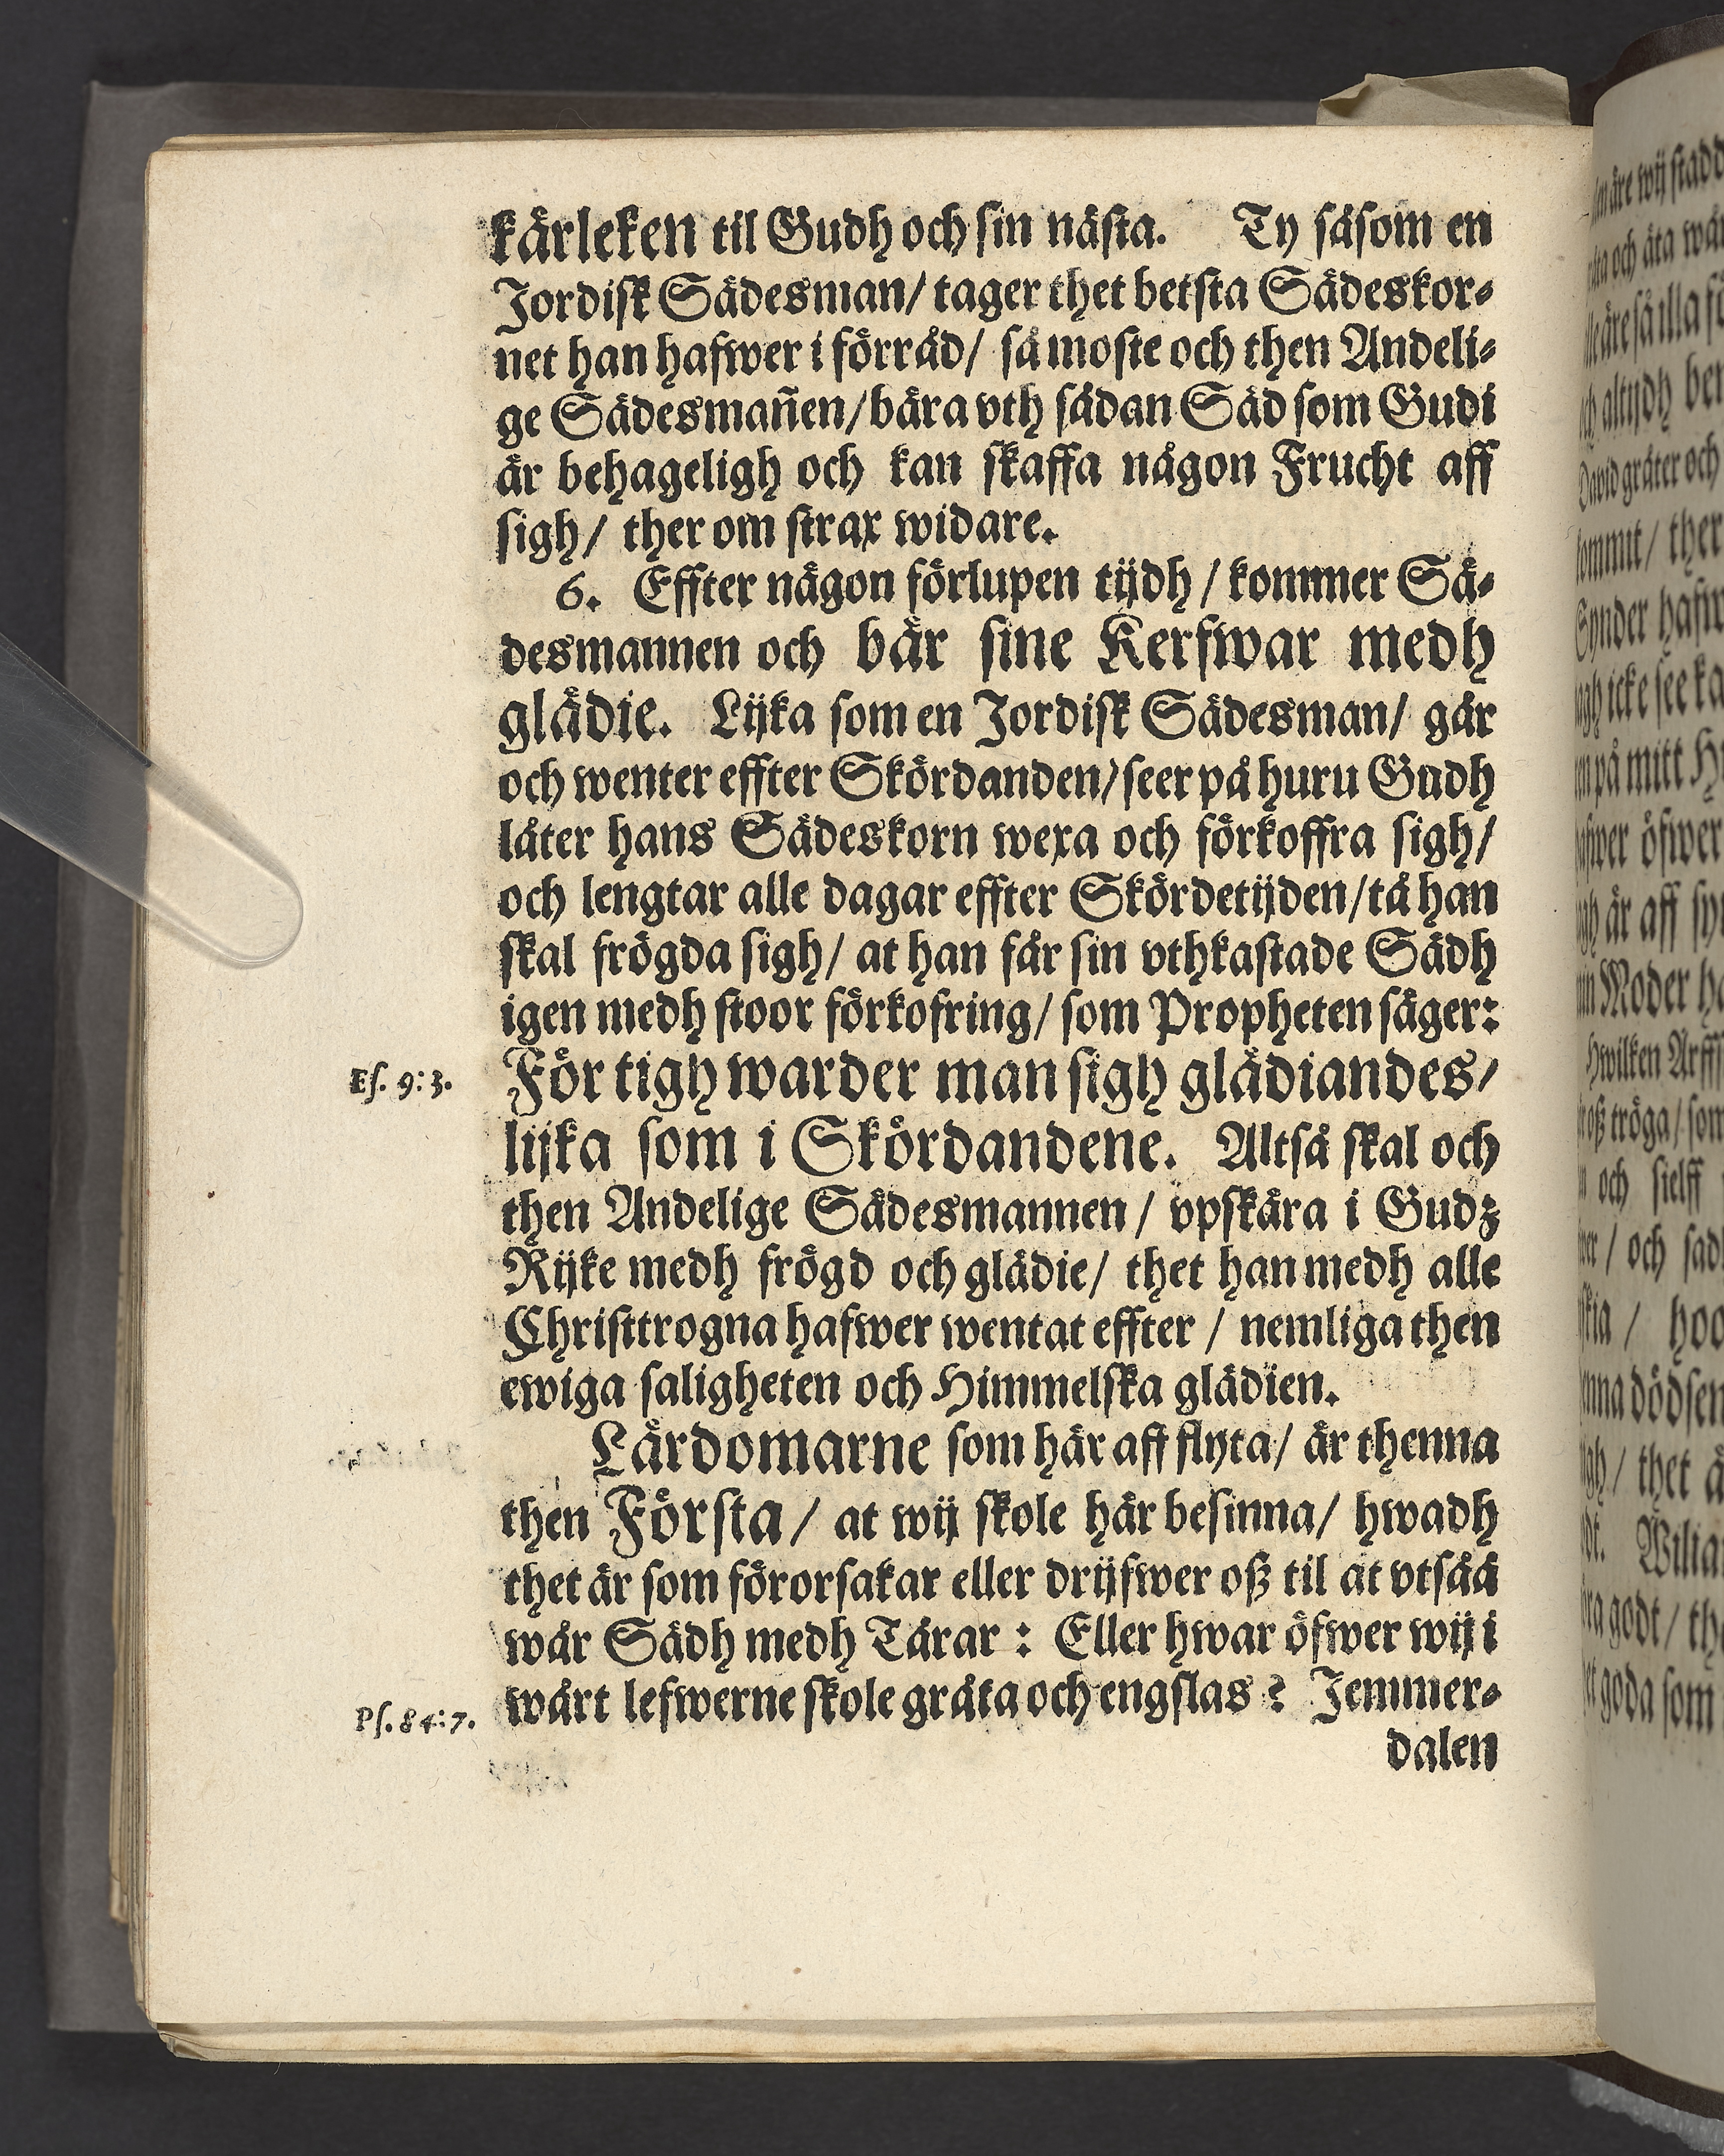 kärleken til Gudh och sin nästa. Ty såsom en
Jordisk Sädesman/ tager thet betsta Sädeskor-
net han hafwer i förråd/ så moste och then Andeli-
ge Sädesmañen/ bära vth sådan Säd som Gudi
är behageligh och kan skaffa någon Frucht aff
sigh/ ther om strax widare.
6. Effter någon förlupen tijdh/ kommer Sä-
desmannen och bär sine Kerfwar medh
glädie. Lijka som en Jordisk Sädesman/ går
och wenter effter Skördanden/ seer på huru Gudh
låter hans Sädeskorn wexa och förkoffra sigh/
och lengtar alle dagar effter Skördetijden/ tå han
skal frögda sigh/ at han får sin vthkastade Sädh
igen medh stoor förkofring/ som Propheten säger:
Es. 9:3.
För tigh warder man sigh glädiandes/
lijka som i Skördandene. Altså skal och
then Andelige Sädesmannen/ vpskära i Gudz
Rijke medh frögd och glädie/ thet han medh alle
Christtrogna hafwer wentat effter/ nemliga then
ewiga saligheten och Himmelska glädien.
Lärdomarne som här aff flyta/ är thenna
then Första/ at wij skole här besinna/ hwadh
thet är som förorsakar eller drijfwer oß til at vtsåå
wår Sädh medh Tårar: Eller hwar öfwer wij i
Ps. 84:7.
wårt lefwerne skole gråta och engslas? Jemmer-
dalen